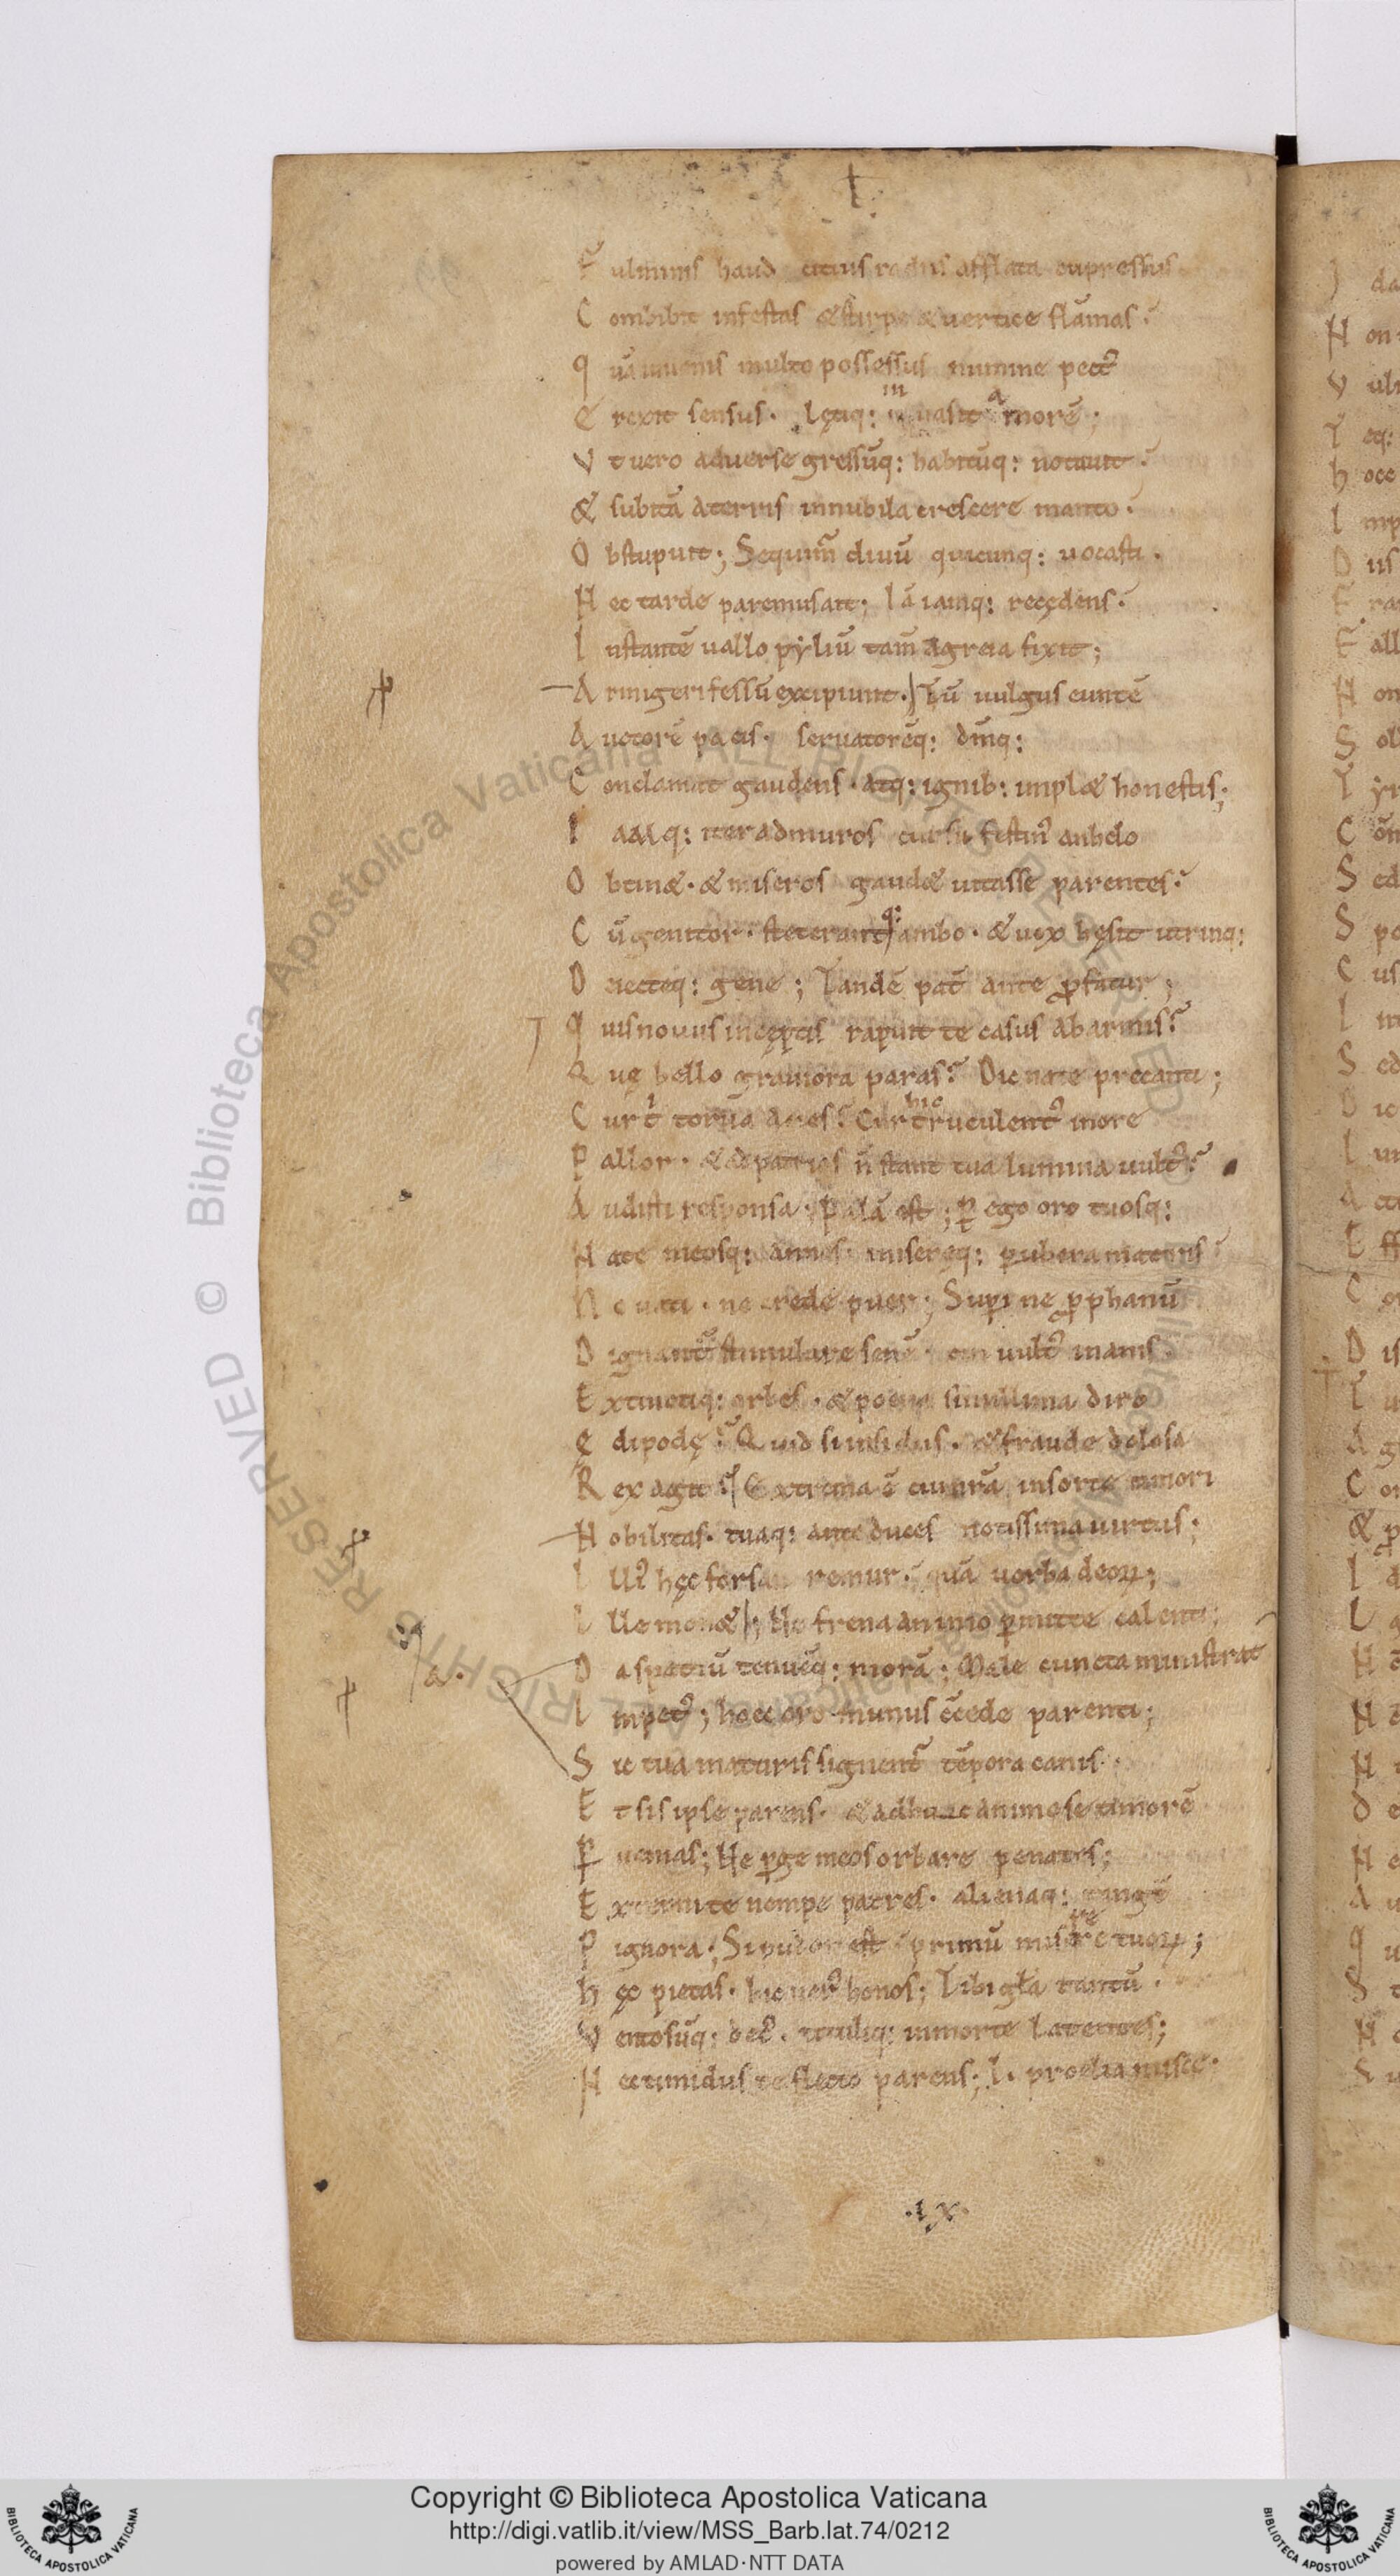 F ulminis haud citius radiis afflata cupressus
C ombibit infestas & stirpe & uertice flāmas.
Q uā iuuenis multo possessus numine pect᷒
E rexit sensus. lętiq: inuasit amorē;
V t uero aduerse gressūq: habitūq: notauit.
& subitā aterris innubila crescere manto.
O bstupuit; Sequim̄ diuū quicunq: uocasti.
N ec tarde paremus ait; Iā iamq: recędens.
I nstantē uallo pyliū tam̄ agrea fixit;
A rmigeri fessū excipiunt. Tū uulgus euntē
A uctorē pacis. seruatorēq: dm̄q:
C onclamat gaudens. atq: ignib: impl& honestis;
I amq: iter admuros cursu festin᷒ anhelo
O btin&. & miseros gaud& uitasse parentes.
C ū genitor. steterant ambo. & uox hęsit utrinq:
D eiecteq: gene; Tandē pat̄ ante p̄fatur;
Q uis nouus incęptis rapuit te casus abarmis?
Q uę bello grauiora paras? Dic nate precanti;
C ur t' torua acies? Cur hic truculent᷒ in ore
P allor. & ad patrios n̄ stant tua lumina uult᷒?
A udisti responsa. Palā est; P̱ ego oro tuosq:
N ate meosq: annos. miseręq: p̱ubera matris
N e uati. ne crede puer; Supi ne p̱phanū
D ignant᷒ stimulare senē. cui uult᷒ inanis
E xtinctiq: orbes. & poena simillima diro
Ę dipodę? Quid si insidiis. & fraude dolosa
R ex agit? Extrema ē cui nr̄a insorte timori
N obilitas. tuaq: ante duces notissima uirtus;
I lli᷒ hęc forsan remur. quā uerba deoꝝ;
I lle mon&; Ne frena animo p̱mitte calenti;
D a spatiū tenuēq: morā; Male cuncta ministrat
I mpet᷒; hoc oro munus c̄cede parenti;
S ic tua maturis signent᷒ tēpora canis.
E t sis ipse parens. & adhunc animose timorē
P̱ uenias; Ne p̱ge meos orbare penates;
E xterni te nempe patres. alienaq: tangt̄
P ignora; Si pudor est primū miserere tuoꝝ;
H ęc pietas. hic uer᷒ honos; Ibi gła tantū.
V entosūq: dec᷒. tituliq: in morte latentes;
N ec timidus te flecto parens; I. proelia misce.
.IX.